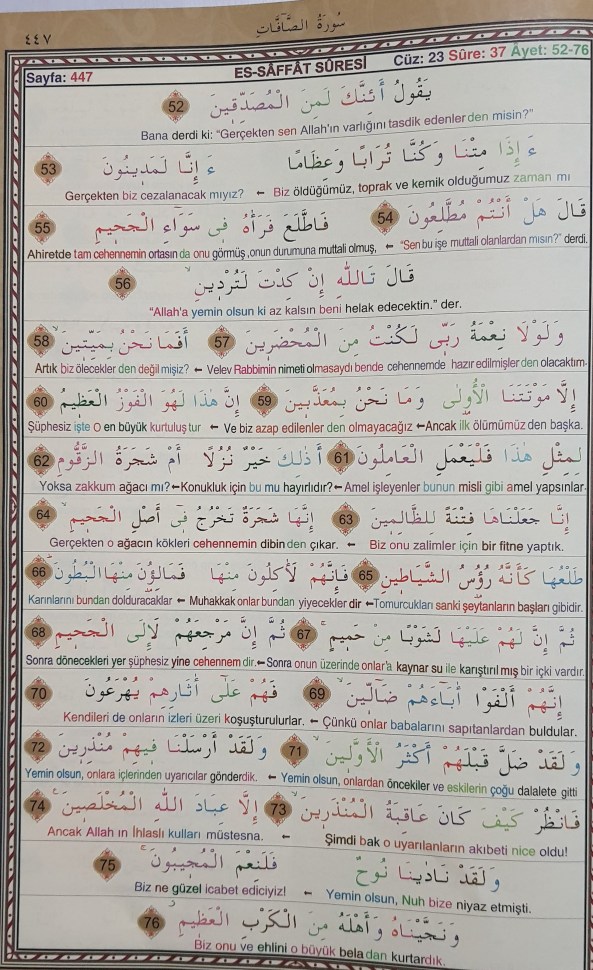 ٤٤٧ سُورَةُ الصَّآفَّاتِ
Sayfa: 447 ES-SÂFFÂT SÛRESİ Cüz: 23 Sûre: 37 Âyet: 52-76
يَقُولُ أَئِنَّكَ لَمِنَ الْمُصَدِّقِينَ 52
Bana derdi ki: “Gerçekten sen Allah'ın varlığını tasdik edenlerden misin?”
ءَ إِذَا مِتْنَا وَ كُنَّا تُرَابًا وَ عِظَامًا ءَ إِنَّا لَمَدِينُونَ 53
Gerçekten biz cezalanacak mıyız? ← Biz öldüğümüz, toprak ve kemik olduğumuz zaman mı
قَالَ هَلْ أَنْتُمْ مُطَّلِعُونَ 54 فَاطَّلَعَ فَرَآهُ فِى سَوَآءِ الْجَحِيمِ 55
Ahiretde tam cehennemin ortasın da onu görmüş ,onun durumuna muttali olmuş, ← “Sen bu işe muttali olanlardan mısın?” derdi.
قَالَ تَاللّٰهِ إِنْ كِدْتَ لَتُرْدِينِ 56
“Allah'a yemin olsun ki az kalsın beni helak edecektin.” der.
وَ لَوْلَا نِعْمَةُ رَبِّى لَكُنْتُ مِنَ الْمُحْضَرِينَ 57 أَفَمَا نَحْنُ بِمَيِّتِينَ 58
Artık biz ölecekler den değil mişiz? ← Velev Rabbimin nimeti olmasaydı bende cehennemde hazır edilmişler den olacaktım.
إِلَّا مَوْتَتَنَا الْأُولٰى وَ مَا نَحْنُ بِمُعَذَّبِينَ 59 إِنَّ هٰذَا لَهُوَ الْفَوْزُ الْعَظِيمُ 60
Şüphesiz işte O en büyük kurtuluş tur ← Ve biz azap edilenler den olmayacağız ←Ancak ilk ölümümüz den başka.
لِمِثْلِ هٰذَا فَلْيَعْمَلِ الْعَامِلُونَ 61 أَ ذٰلِكَ خَيْرٌ نُزُلًا أَمْ شَجَرَةُ الزَّقُّومِ 62
Yoksa zakkum ağacı mı?←Konukluk için bu mu hayırlıdır?←Amel işleyenler bunun misli gibi amel yapsınlar.
إِنَّا جَعَلْنَاهَا فِتْنَةً لِلظَّالِمِينَ 63 إِنَّهَا شَجَرَةٌ تَخْرُجُ فِى أَصْلِ الْجَحِيمِ 64
Gerçekten o ağacın kökleri cehennemin dibin den çıkar. ← Biz onu zalimler için bir fitne yaptık.
طَلْعُهَا كَأَنَّهُ رُؤُسُ الشَّيَاطِينِ 65 فَإِنَّهُمْ لَأٰكِلُونَ مِنْهَا فَمَالِؤُنَ مِنْهَا الْبُطُونَ 66
Karınlarını bundan dolduracaklar ← Muhakkak onlar bundan yiyecekler dir ←Tomurcukları sanki şeytanların başları gibidir.
ثُمَّ إِنَّ لَهُمْ عَلَيْهَا لَشَوْبًا مِنْ حَمِيمٍ 67 ثُمَّ إِنَّ مَرْجِعَهُمْ لَاِلَى الْجَحِيمِ 68
Sonra dönecekleri yer şüphesiz yine cehennem dir.←Sonra onun üzerinde onlar'a kaynar su ile karıştırıl mış bir içki vardır.
إِنَّهُمْ أَلْفَوْا أٰبَآءَهُمْ ضَآلِّينَ 69 فَهُمْ عَلٰى أٰثَارِهِمْ يُهْرَعُونَ 70
Kendileri de onların izleri üzeri koşuşturulurlar. ← Çünkü onlar babalarını sapıtanlardan buldular.
وَ لَقَدْ ضَلَّ قَبْلَهُمْ أَكْثَرُ الْأَوَّلِينَ 71 وَ لَقَدْ أَرْسَلْنَا فِيهِمْ مُنْذِرِينَ 72
Yemin olsun, onlara içlerinden uyarıcılar gönderdik. ← Yemin olsun, onlardan öncekiler ve eskilerin çoğu dalalete gitti
فَانْظُرْ كَيْفَ كَانَ عَاقِبَةُ الْمُنْذَرِينَ 73 إِلَّا عِبَادَ اللّٰهِ الْمُخْلَصِينَ 74
Ancak Allah ın İhlaslı kulları müstesna. ← Şimdi bak o uyarılanların akıbeti nice oldu!
وَ لَقَدْ نَادٰينَا نُوحٌ فَلَنِعْمَ الْمُجِيبُونَ 75
Biz ne güzel icabet ediciyiz! ← Yemin olsun, Nuh bize niyaz etmişti.
وَ نَجَّيْنَاهُ وَ أَهْلَهُ مِنَ الْكَرْبِ الْعَظِيمِ 76
Biz onu ve ehlini o büyük bela dan kurtardık.